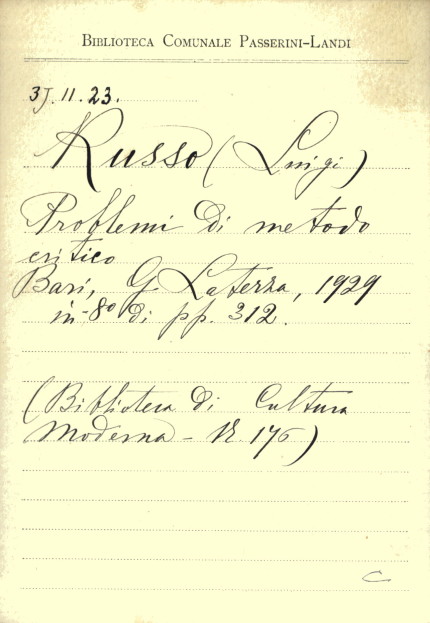 BIBLIOTECA COMUNALE PASSERINI-LANDI
3J. 11. 23.
Russo (Luigi)
Problemi di metodo
critico
Bari, G. Laterza, 1929
in-8º di pp. 312.
(Biblioteca di Cultura
Moderna - N. 176)
C